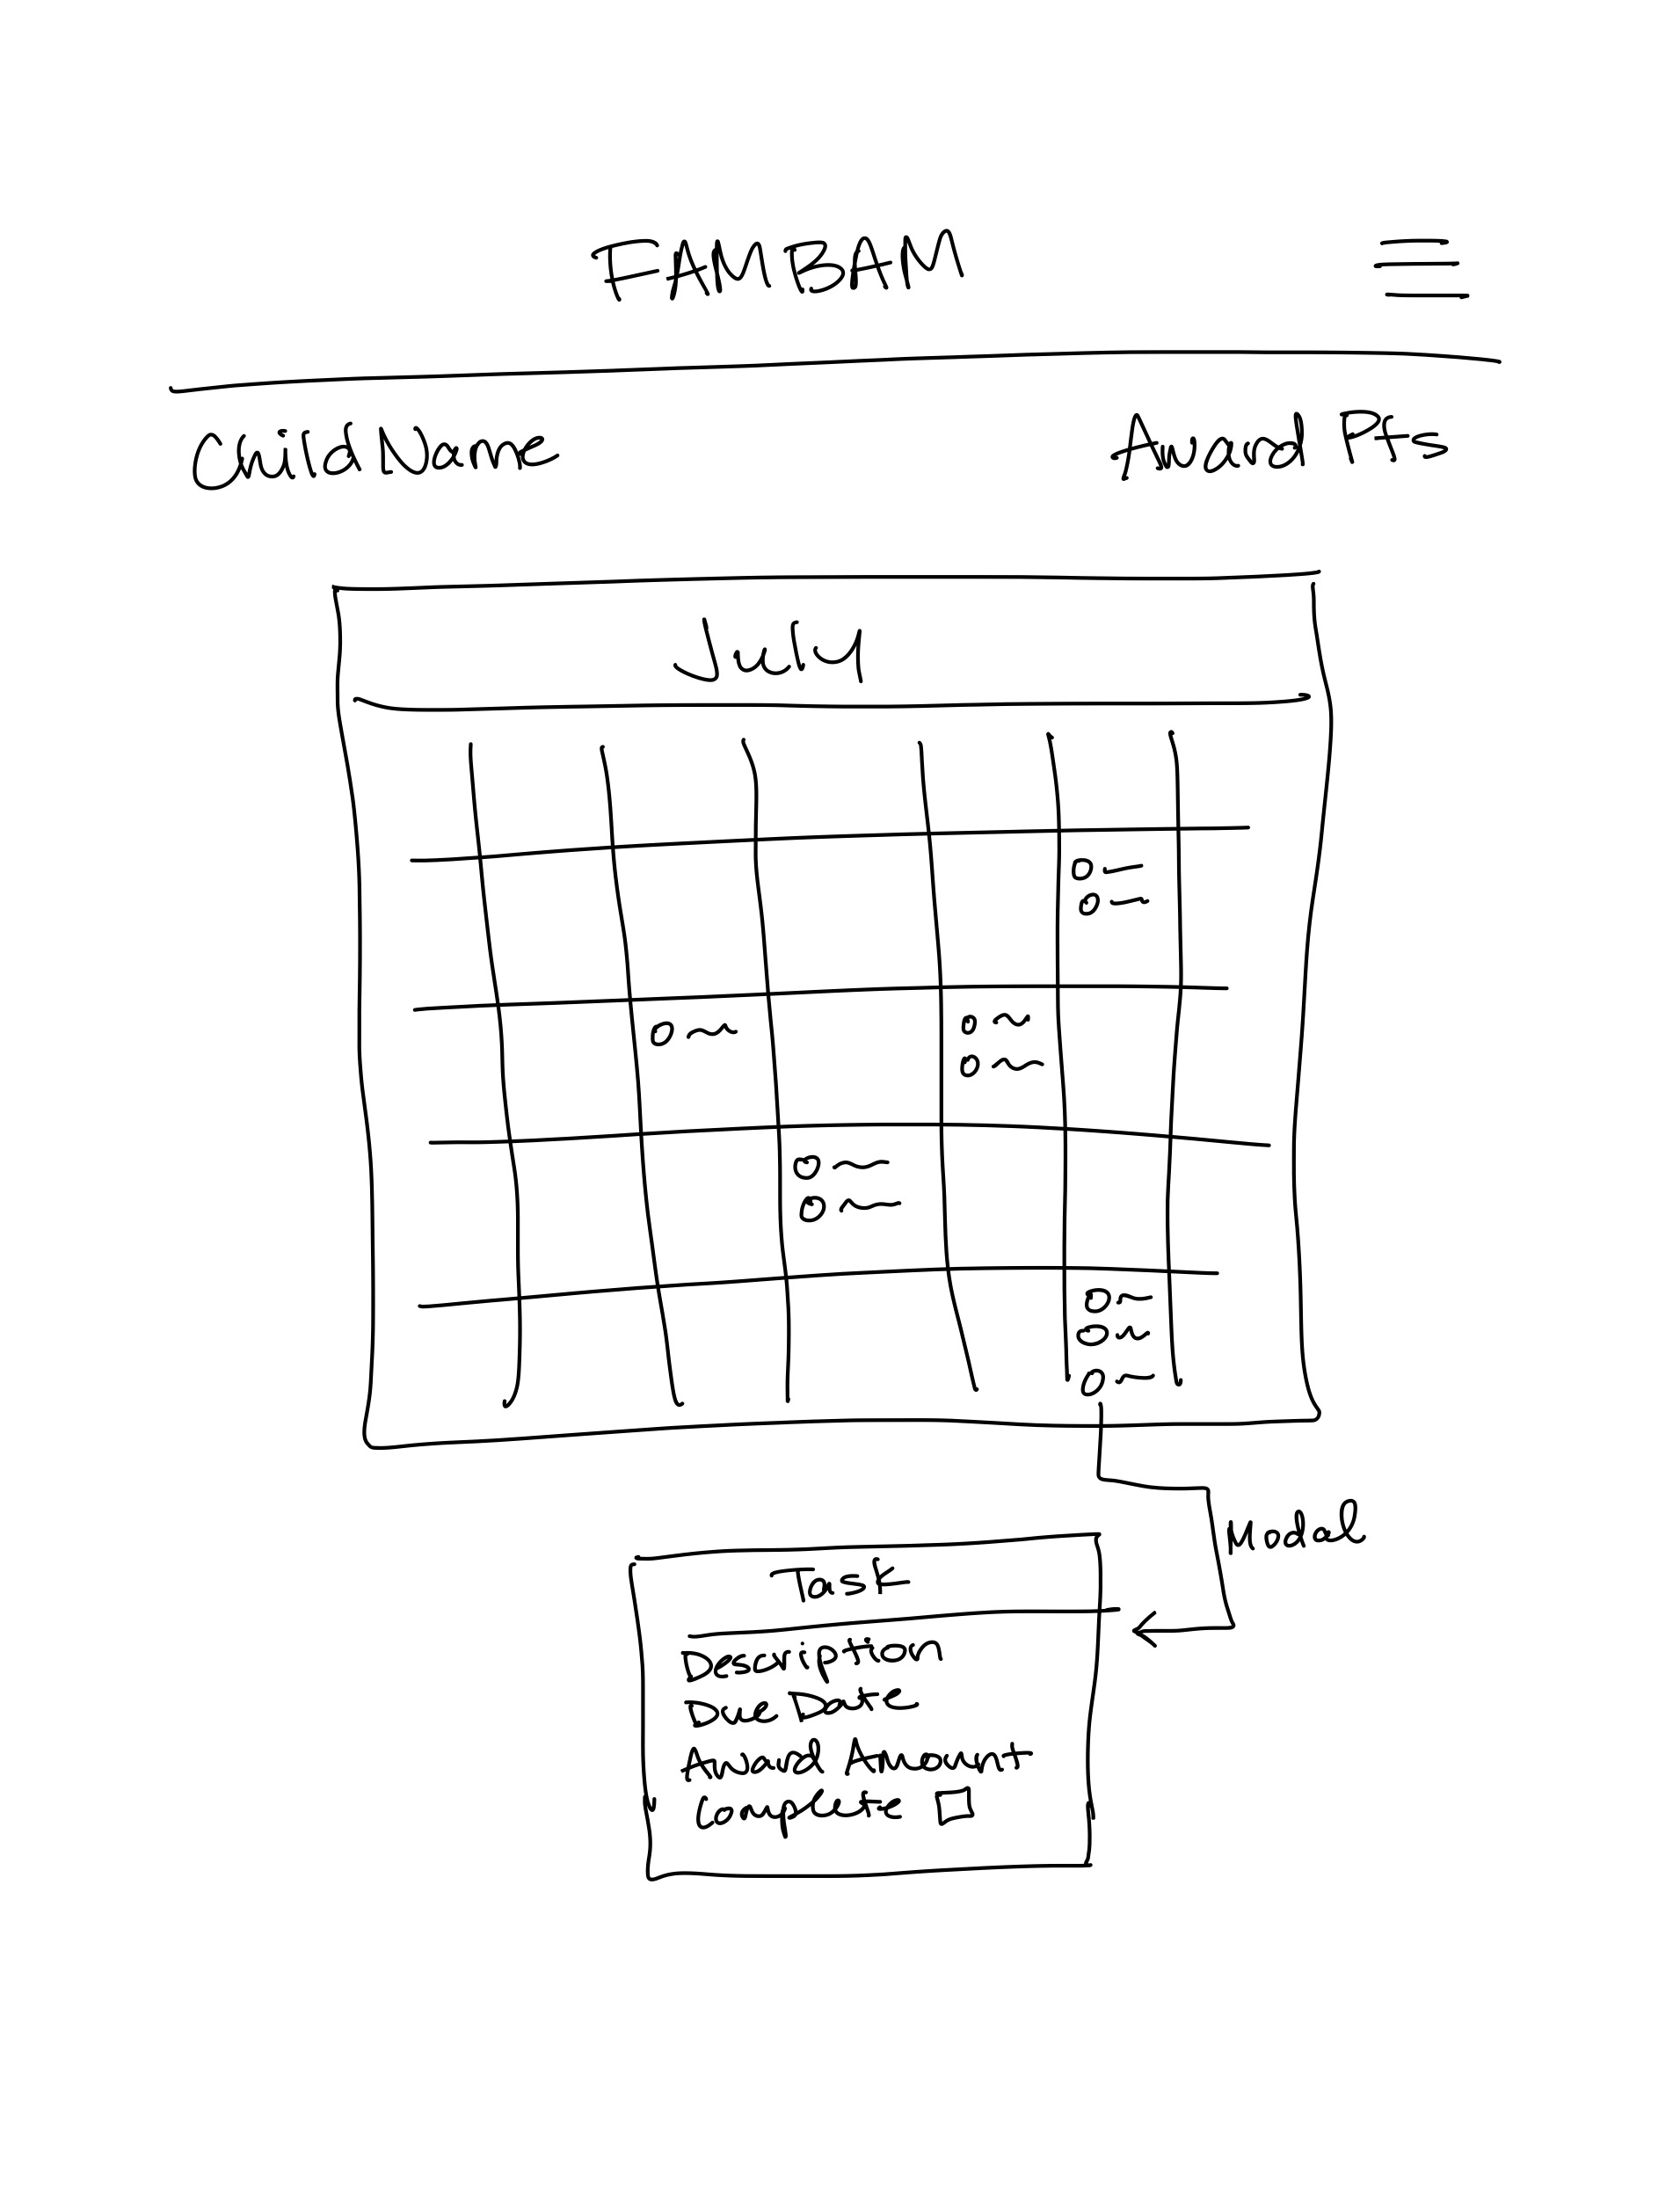 FAMBAM
Child Name
Award Pts
July
Modal
Task
Description
Due Date
Award Amount
Complete